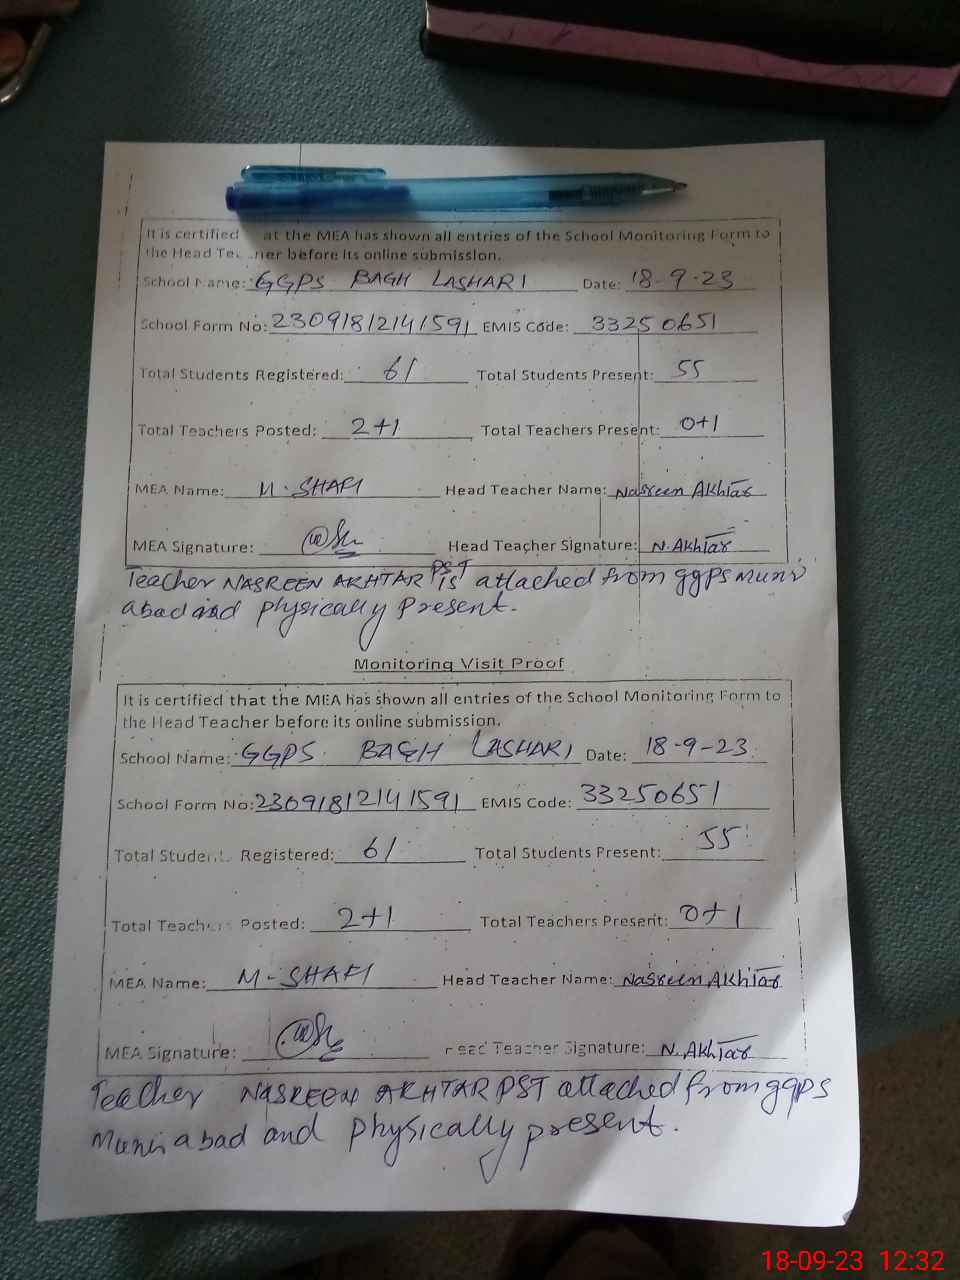 It is certified at the MEA has shown all entries of the School Monitoring Form to
the Head Te ner before its online submission.
School Name: GGPS BAGH LASHARI Date: 18-9-23
School Form No: 23091812141591 EMIS Code: 33250651
Total Students Registered: 61 Total Students Present: 55
Total Teachers Posted: 2+1 Total Teachers Present: 0+1
MEA Name: M. SHAFI Head Teacher Name: Nasreen Akhtar
MEA Signature: Head Teacher Signature: N. Akhtar
Teacher NASREEN AKHTAR PST is attached from ggps Munir
abad and physically present.
Monitoring Visit Proof
It is certified that the MEA has shown all entries of the School Monitoring Form to
the Head Teacher before its online submission.
School Name: GGPS BAGH LASHARI Date: 18-9-23
School Form No: 23091812141591 EMIS Code: 33250651
Total Student Registered: 61 Total Students Present: 55
Total Teachers Posted: 2+1 Total Teachers Present: 0+1
MEA Name: M-SHAFI Head Teacher Name: Nasreen Akhtar
MEA Signature: Head Teacher Signature: N. Akhtar
Teacher NASREEN AKHTAR PST attached from ggps
Munir abad and physically present.
18-09-23 12:32